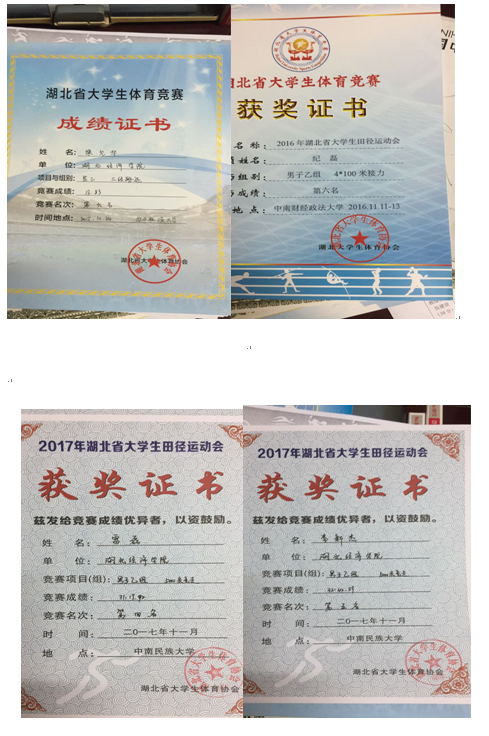 湖北省大学生体育竞赛
成绩证书
姓 名:
单 位: 湖北经济学院
项目与组别:
竞赛成绩:
竞赛名次:
时间地点:
湖北省大学生体育协会
湖北省大学生体育竞赛
获奖证书
名称: 2016年湖北省大学生田径运动会
姓名: 纪磊
组别: 男子乙组 4*100米接力
成绩: 第六名
地点: 中南财经政法大学 2016.11.11-13
湖北省大学生体育协会
2017年湖北省大学生田径运动会
获奖证书
兹发给竞赛成绩优异者，以资鼓励。
姓 名: 雷磊
单 位: 湖北经济学院
竞赛项目(组): 男子乙组
竞赛成绩:
竞赛名次: 第四名
时 间: 二〇一七年十一月
地 点: 中南民族大学
湖北省大学生体育协会
2017年湖北省大学生田径运动会
获奖证书
兹发给竞赛成绩优异者，以资鼓励。
姓 名: 李新杰
单 位: 湖北经济学院
竞赛项目(组): 男子乙组
竞赛成绩:
竞赛名次: 第五名
时 间: 二〇一七年十一月
地 点: 中南民族大学
湖北省大学生体育协会